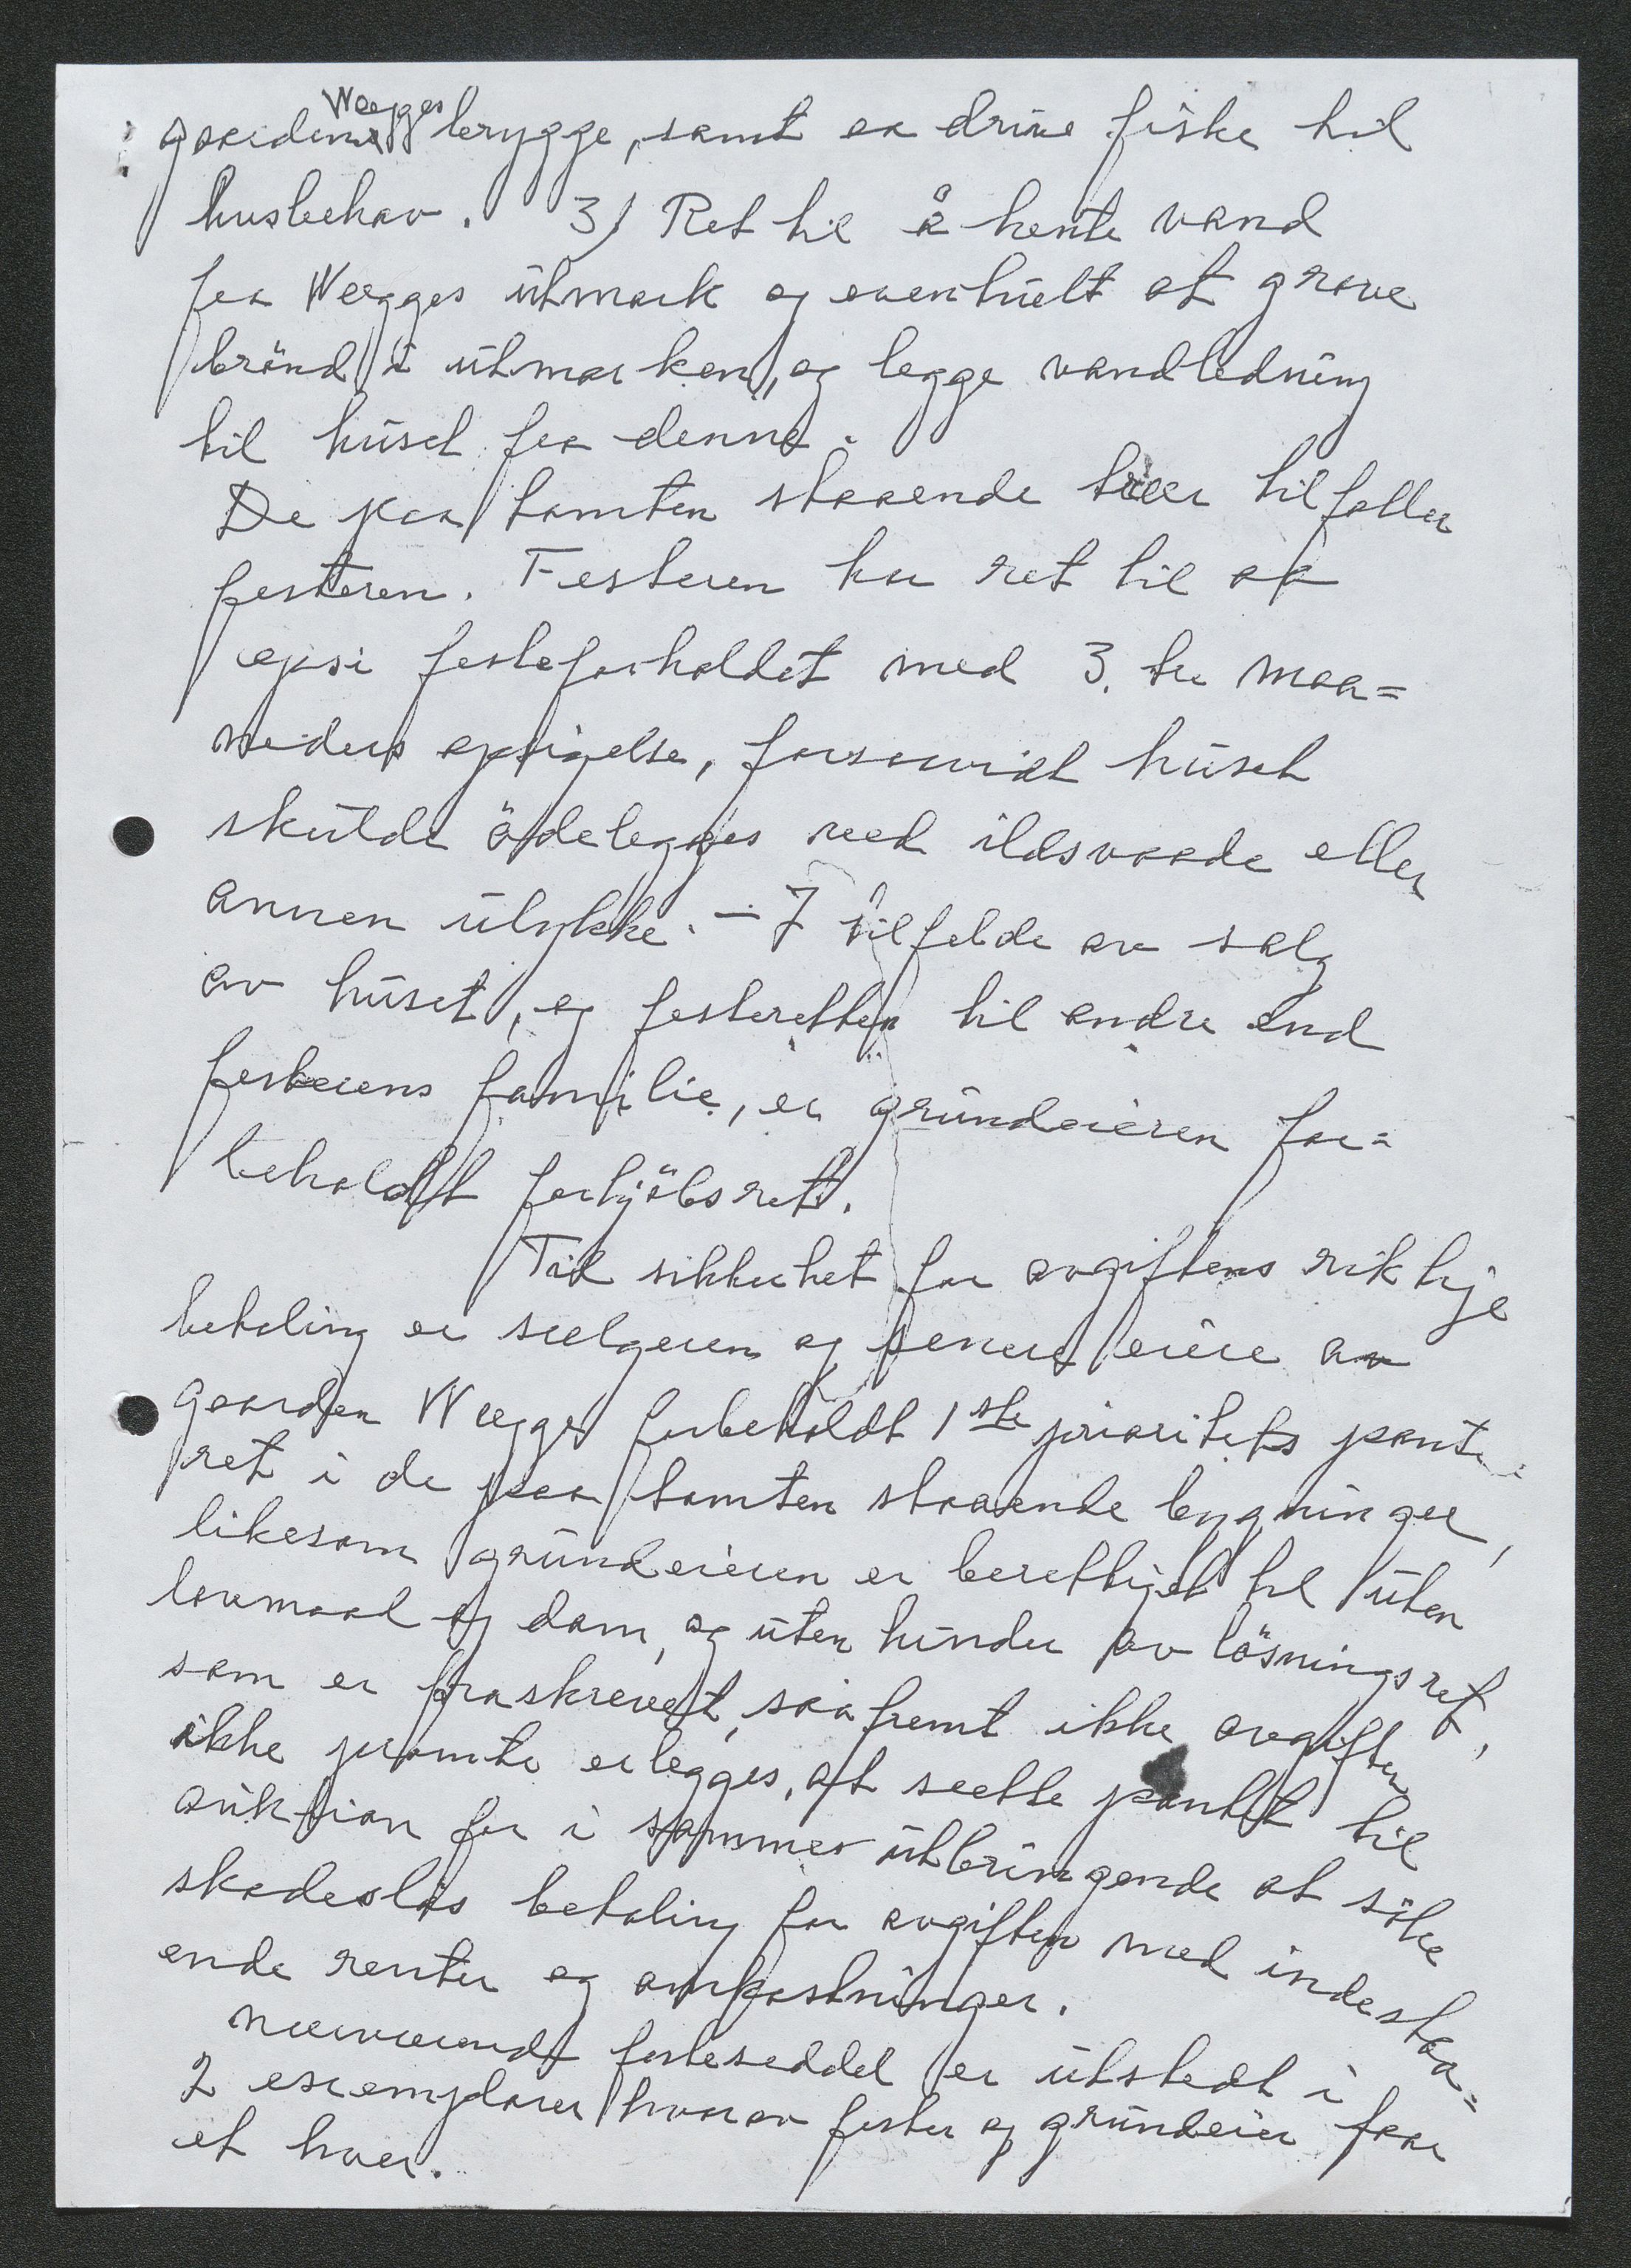 gaarden Wægges brygge, samt aa drive fiske til
husbehov. 3) Ret til å hente vand
fra Wægges utmark og eventuelt at grave
brönd i utmarken, og legge vandledning
til huset fra denne.
De paa tomten staaende træer tilfaller
festeren. Festeren har ret til aa
opsi festeforholdet med 3. tre maa=
neders opsigelse, forsaavidt huset
skulde ödelegges ved ildsvaade eller
annen ulykke. - I tilfelde av salg
av huset, og festeretten til andre end
festerens familie, er grundeieren for=
beholdt forkjöbsret.
Til sikkerhet for avgiftens riktige
betaling er sælgeren og senere eiere av
gaarden Wægge forbeholdt 1ste prioritets pante=
ret i de paa tomten staaende bygninger,
likesom grundeieren er berettiget til uten
lovmaal og dom, og uten hinder av lösningsret,
som er fraskrevet, saafremt ikke avgiften,
ikke promte erlegges, at sætte pantet til
auktion for i sammes utbringende at söke
skadeslös betaling for avgiften med indestaa=
ende renter og omkostninger.
nærværende festeseddel er utstedt i
2 exemplarer hvorav fester og grundeier faar
et hver.